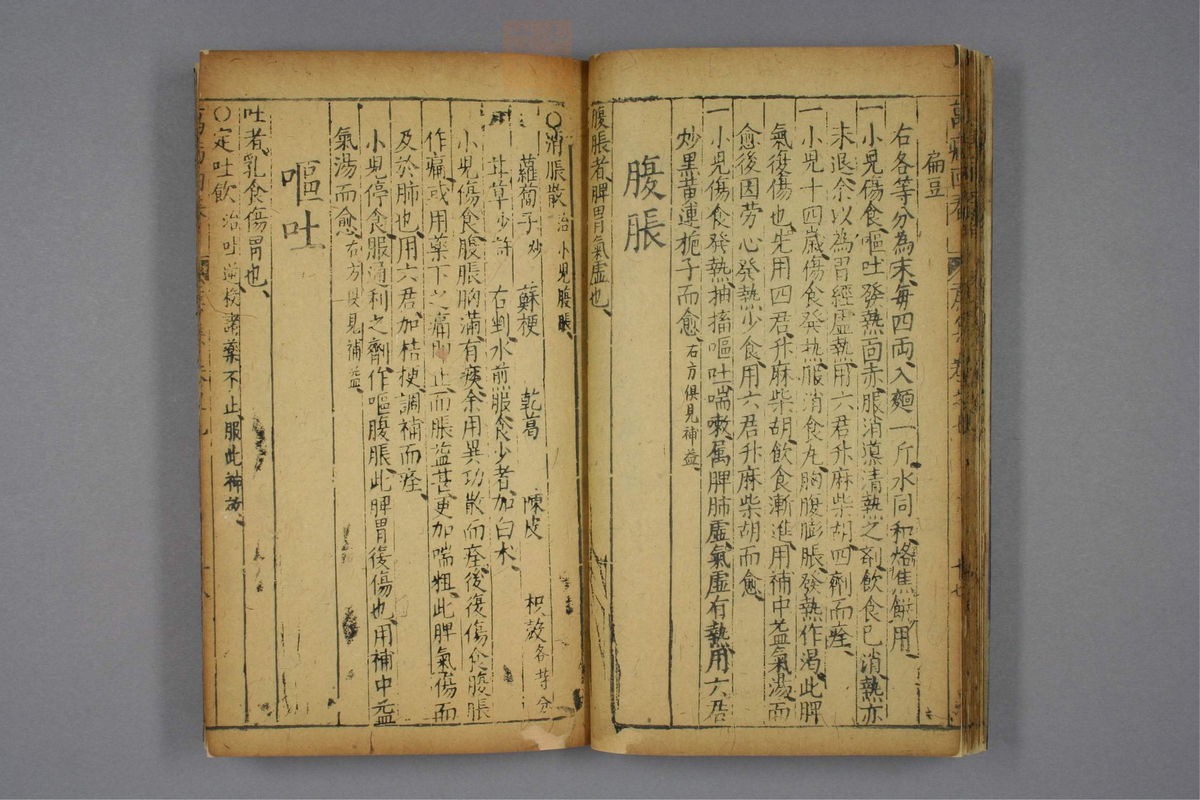 扁豆
右各等分為末每四両入麵一斤水同和烙焦餅用
一小兒傷食嘔吐發熱面赤服消導清熱之剤飲食已消熱亦
未退余以為胃經虛熱用六君升麻柴胡四劑而痊
一小兒十四歲傷食發热服消食丸胸腹膨脹發熱作渴此脾
氣復傷也先用四君升麻柴胡飲食漸進用補中益氣湯而
愈後因劳心發熱少食用六君升麻柴胡而愈
一小兒傷食發熱抽搐嘔吐喘嗽属脾肺虛氣虛有熱用六君
炒黑黄連梔子而愈右方俱見補益
腹脹
腹脹者脾胃氣虛也
〇消脹散治小兒腹脹
蘿蔔子炒 蘇梗 乾葛 陳皮 枳殼各等分
甘草少許 右剉水煎服食少者加白术
小兒傷食腹脹胸滿有痰余用異功散而痊後復傷食腹脹
作痛或用藥下之痛即止而脹益甚更加喘粗此脾氣傷而
及於肺也用六君加桔梗調補而痊
小兒停食服通利之劑作嘔腹脹此脾胃復傷也用補中益
氣湯而愈右方俱見補益
嘔吐
吐者乳食傷胃也
〇定吐飲治吐逆投諸藥不止服此神効